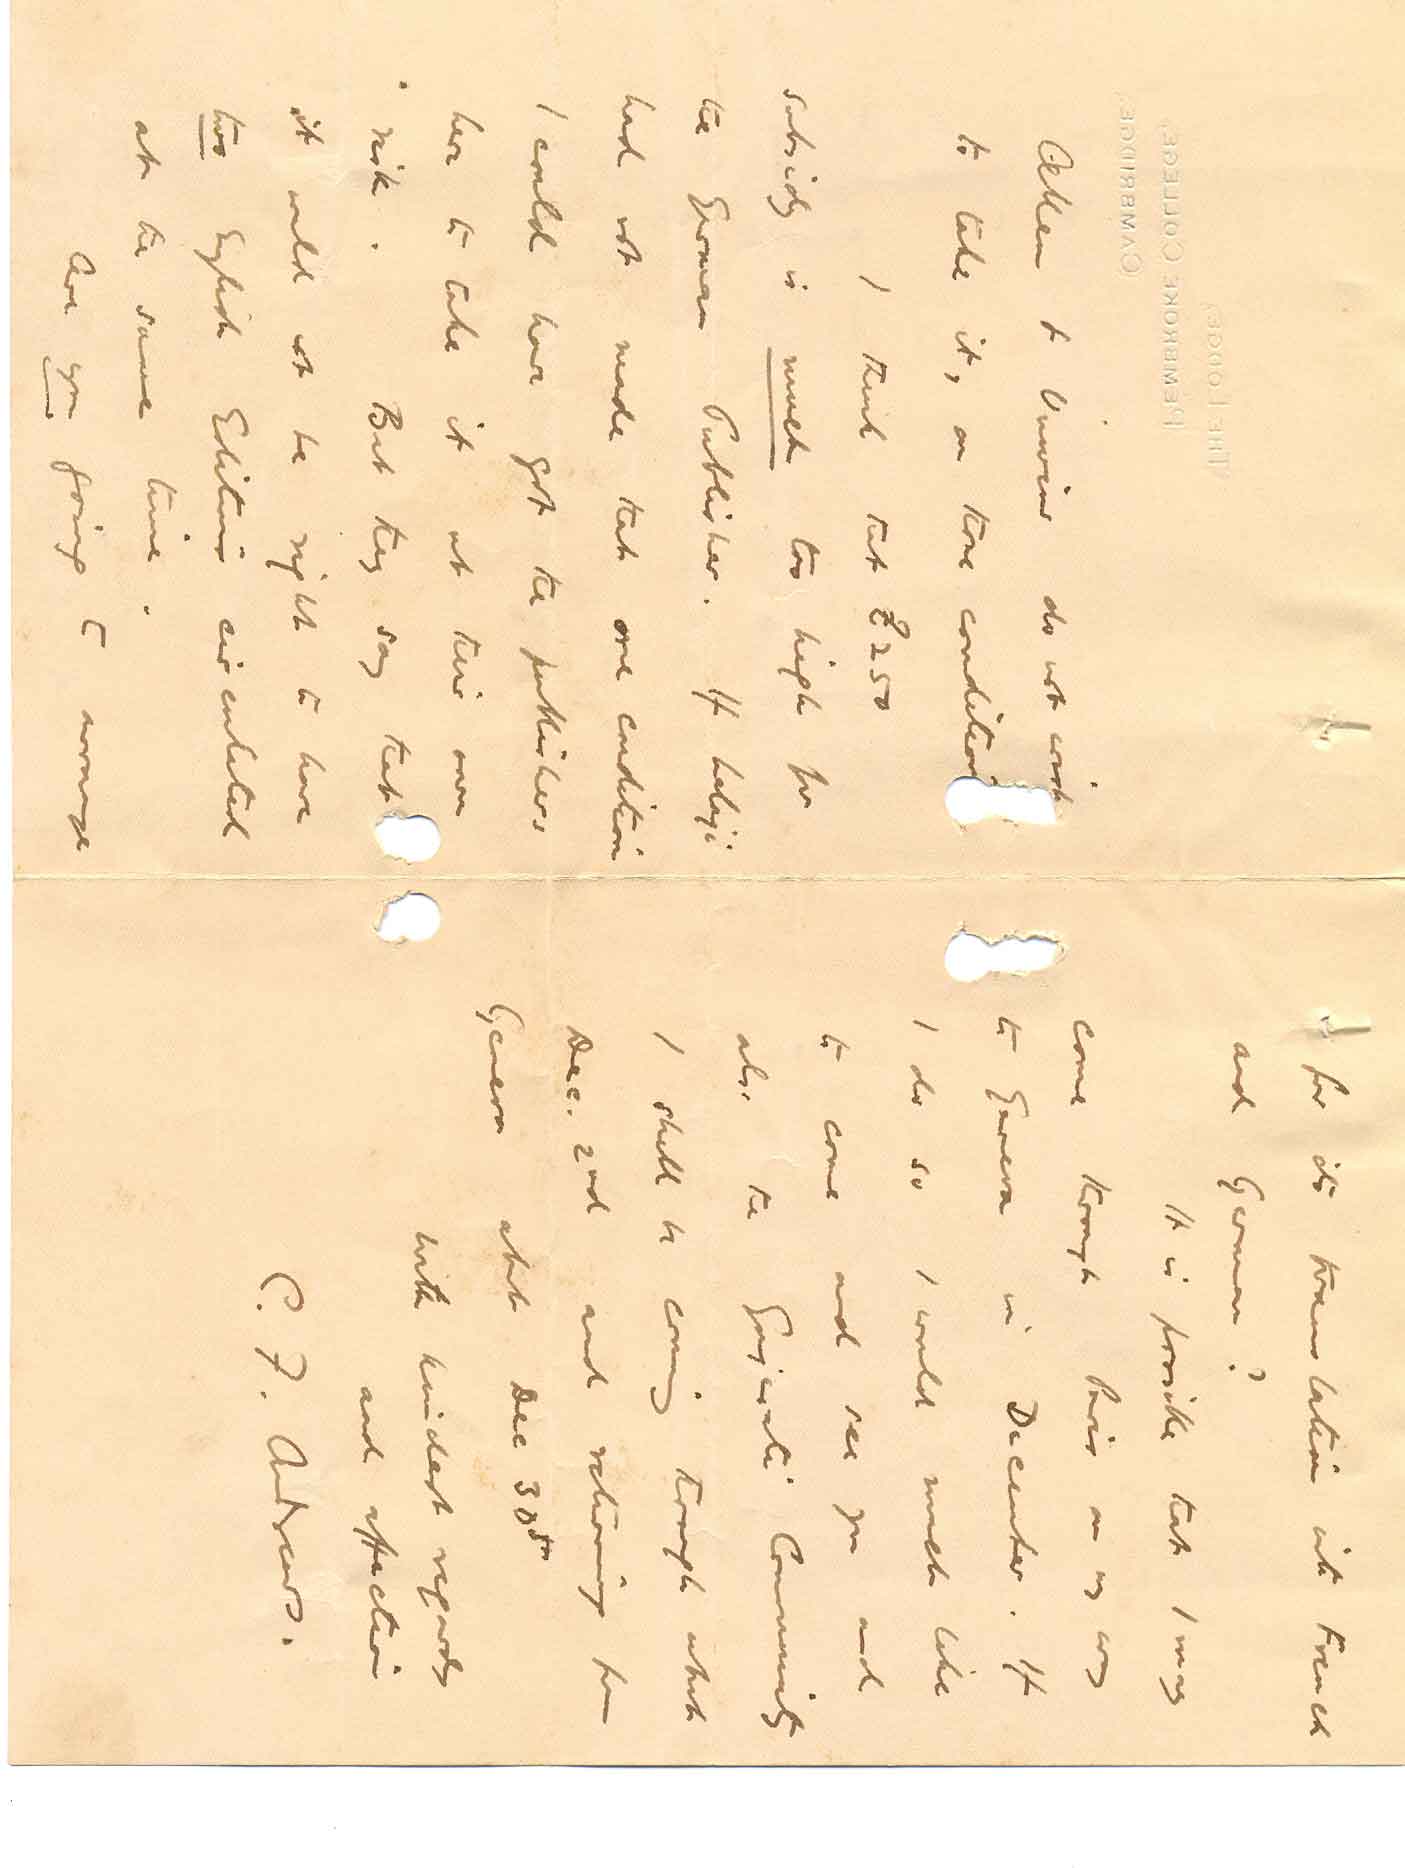 THE LODGE,
PEMBROKE COLLEGE,
CAMBRIDGE.
Allen & Unwin do not wish
to take it, on those conditions
I think that £250
subsidy is much too high for
the German Publisher. If
had not made that one condition
I could have got the publishers
here to take it at their own
risk. But they say that
it would not be right to have
two English Editions circulated
at the same time.
Are you going to arrange
for its translation into French
and German?
It is possible that I may
come through Paris on my way
to Geneva in December. If
I do so I would much like
to come and see you and
also the Gujerati Community
I shall be coming through about
Dec. 2nd and returning from
Geneva about Dec 30th
With kindest regards
and affection
C. F. Andrews.